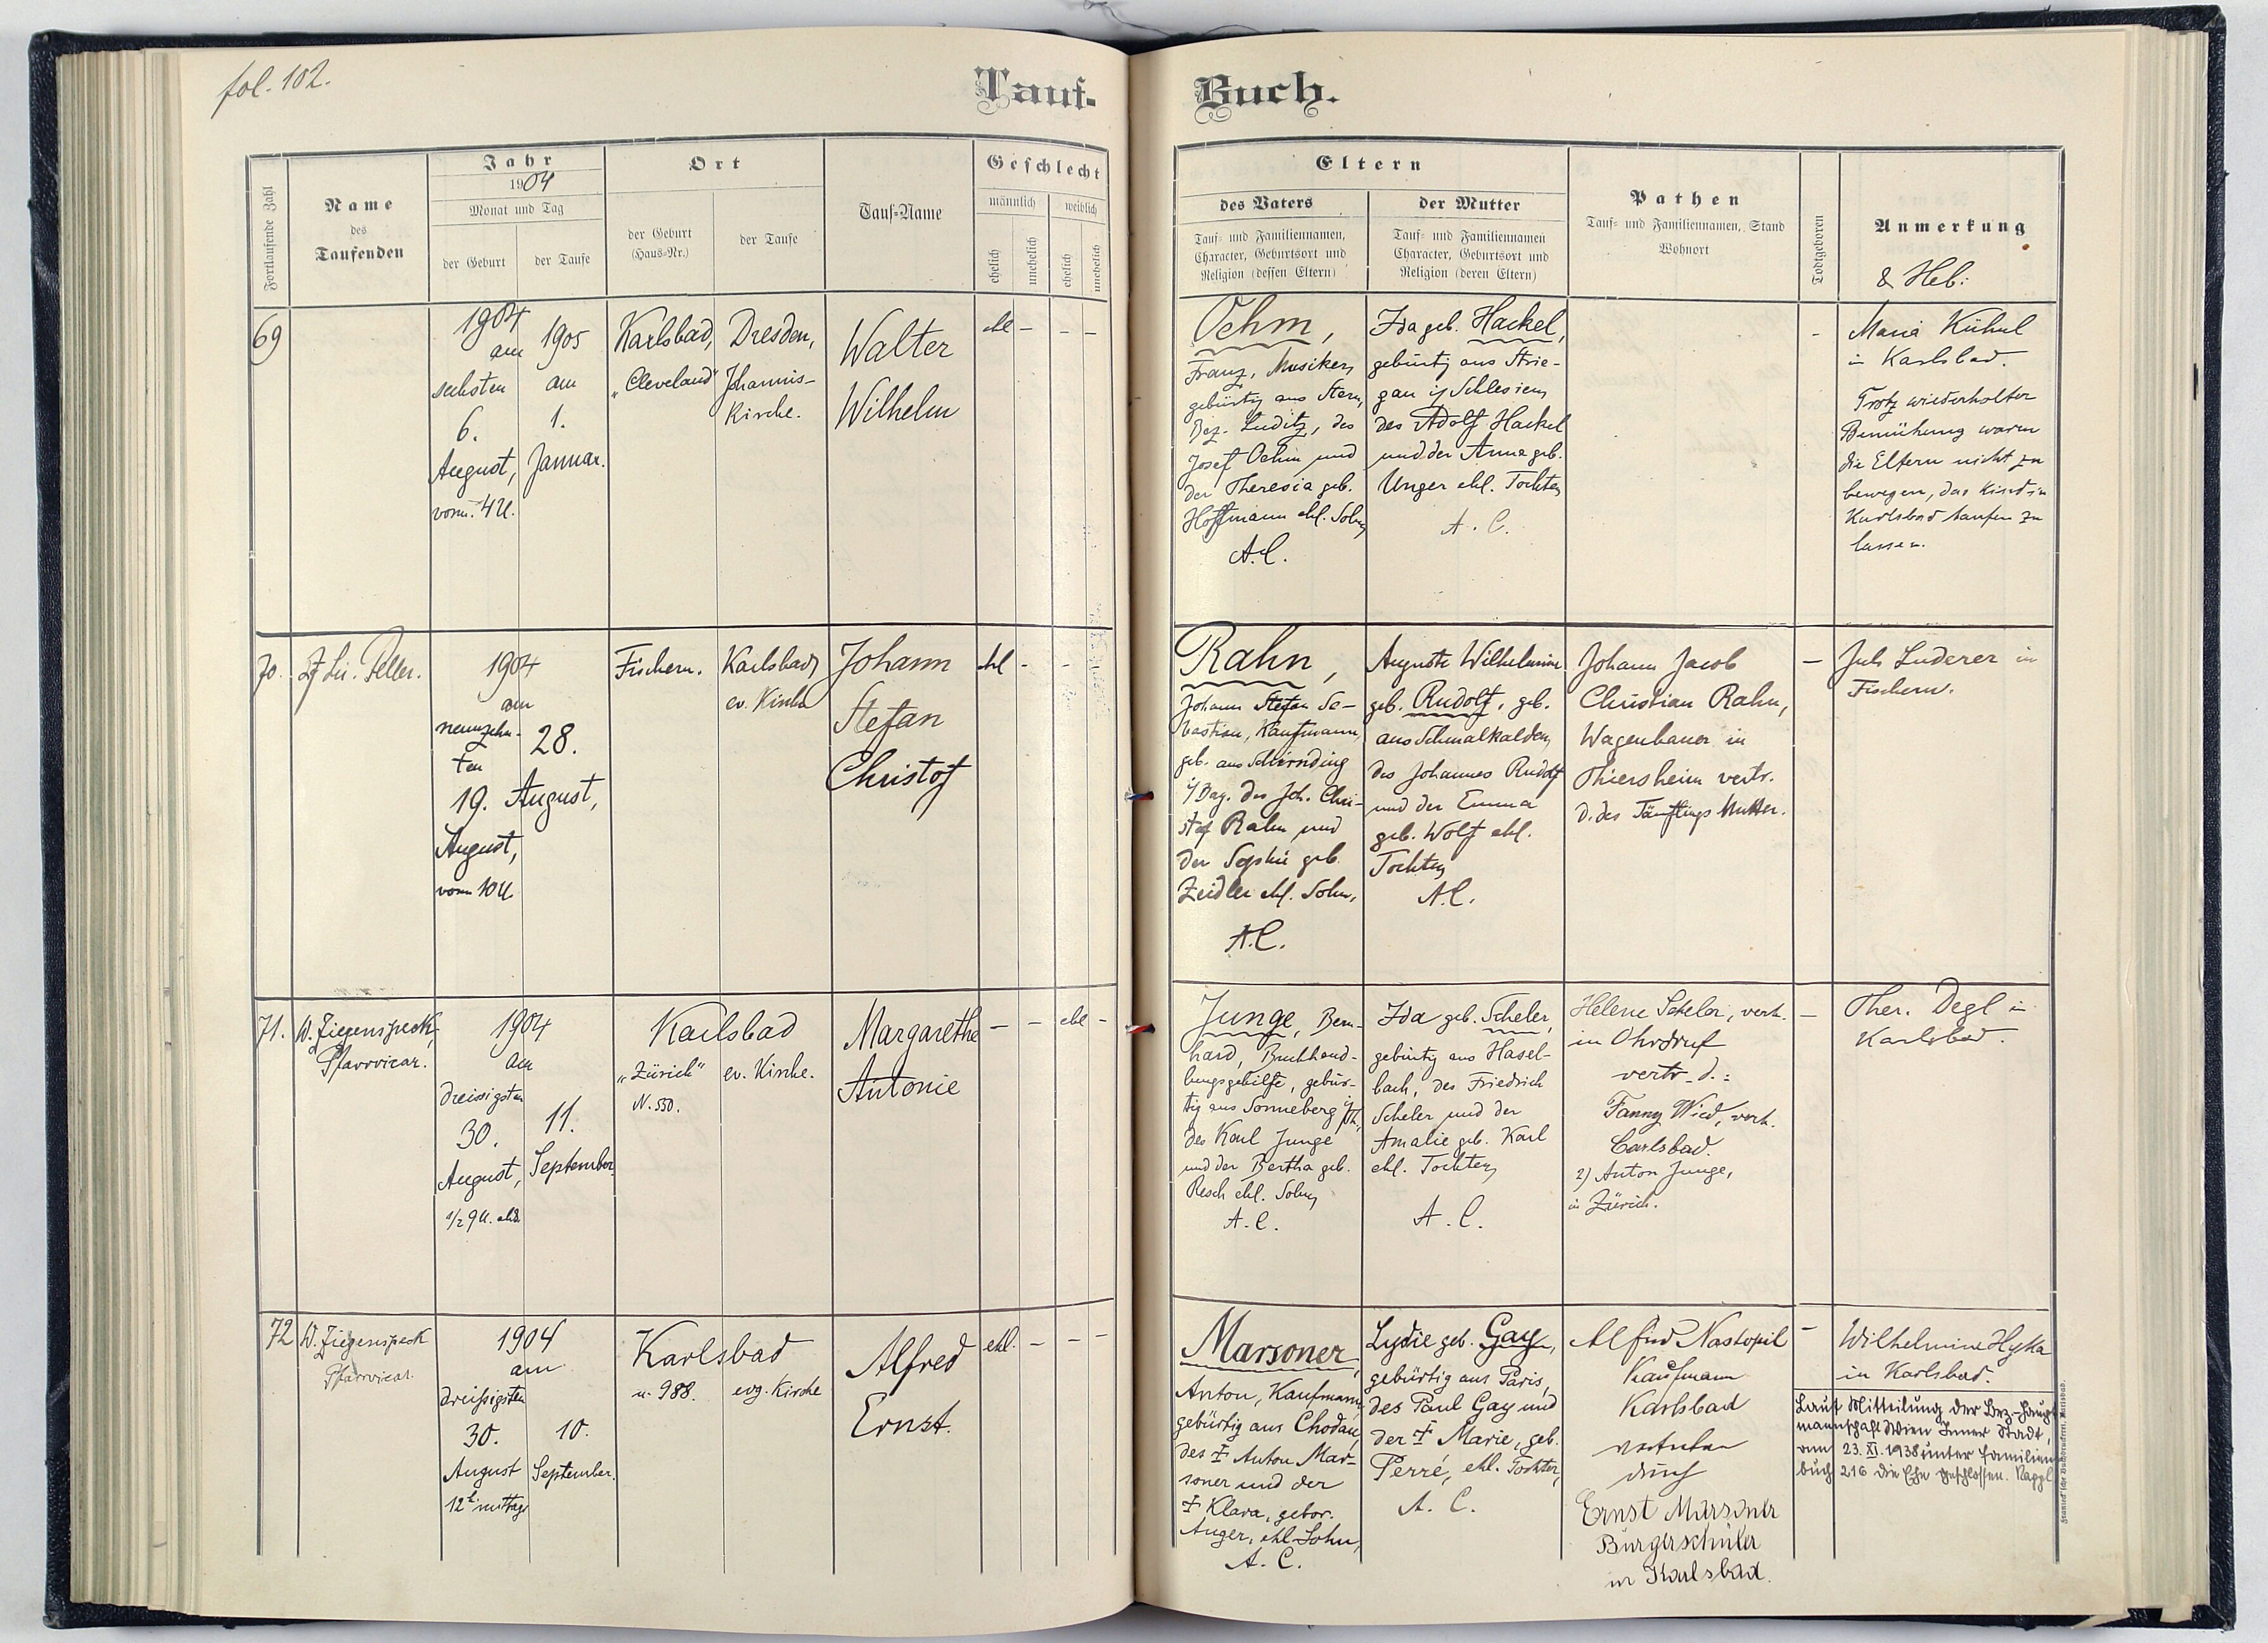 fol. 102.
Tauf-
Buch.
Fortlaufende Zahl
Name
des
Taufenden
Jahr
1904
Monat und Tag
der Geburt
der Taufe
Ort
der Geburt
(Haus-Nr.)
der Taufe
Tauf-Name
Geschlecht
männlich
weiblich
ehelich
unehelich
ehelich
unehelich
Eltern
des Vaters
Tauf- und Familiennamen,
Character, Geburtsort und
Religion (dessen Eltern)
der Mutter
Tauf- und Familiennamen
Character, Geburtsort und
Religion (deren Eltern)
Pathen
Tauf- und Familiennamen, Stand
Wohnort
Todtgeboren
Anmerkung
& Heb:
69
1904
am
sechsten
6.
August,
vorm. 4 U.
1905
am
1.
Januar.
Karlsbad,
"Cleveland"
Dresden,
Johannis-
Kirche.
Walter
Wilhelm
ehl - - -
Oehm,
Franz, Musiker,
gebürtig aus Stern,
Bez. Luditz, des
Josef Oehm und
der Theresia geb.
Hoffmann ehl. Sohn,
A.C.
Ida geb. Hackel,
gebürtig aus Strie-
gau i/ Schlesien,
des Adolf Hackel
und der Anna geb.
Unger ehl. Tochter,
A. C.
-
Maria Kühnl
in Karlsbad.
Trotz wiederholter
Bemühung waren
die Eltern nicht zu
bewegen, das Kind in
Karlsbad taufen zu
lassen.
70.
1904
am
neunzehn-
ten
19.
August,
vorm 10 U.
28.
August,
Fischern.
Karlsbad,
ev. Kirche
Johann
Stefan
Christof
ehl - -
Rahn,
Johann Stefan Se-
bastian, Kaufmann,
geb. aus Schirnding
i/Bay. des Joh. Chri-
stof Rahn und
der Sophie geb.
Zeidler ehl. Sohn,
A.C.
Auguste Wilhelmine
geb. Rudolf, geb.
aus Schmalkalden,
des Johannes Rudolf
und der Emma
geb. Wolf ehl.
Tochter,
A.C.
Johann Jacob
Christian Rahn,
Wagenbauer in
Thiersheim vertr.
d. des Täuflings Mutter.
-
Luderer in
Fischern.
71.
W. Ziegenspeck,
Pfarrvicar.
1904
am
dreissigsten
30.
August,
1/2 9 U. abds.
11.
September
Karlsbad
"Zürich"
N. 550.
ev. Kirche.
Margarethe
Antonie
- - ehl -
Junge, Bern-
hard, Buchhand-
lungsgehilfe, gebür-
tig aus Sonneberg i/Th.,
des Karl Junge
und der Bertha geb.
Resch ehl. Sohn,
A. C.
Ida geb. Scheler,
gebürtig aus Hasel-
bach, des Friedrich
Scheler und der
Amalie geb. Karl
ehl. Tochter,
A. C.
Helene Scheler, verh.
in Ohrdruf
vertr. d.:
Fanny Wied, verh.
Carlsbad.
2) Anton Junge,
in Zürich.
-
Ther. Degl in
Karlsbad.
72
W. Ziegenspeck
Pfarrvicar.
1904
am
dreißigsten
30.
August
12h mittags
10.
September.
Karlsbad
n. 988.
evg. Kirche
Alfred
Ernst.
ehl. - - -
Marsoner,
Anton, Kaufmann,
gebürtig aus Chodau,
des † Anton Mar-
soner und der
† Klara, gebor.
Anger, ehl. Sohn,
A. C.
Lydie geb. Gay,
gebürtig aus Paris,
des Paul Gay und
der † Marie, geb.
Perré, ehl. Tochter,
A. C.
Alfred Nastopil
Kaufmann
Karlsbad
vertreten
durch
Ernst Marsoner
Bürgerschüler
in Karlsbad.
-
Wilhelmine Hyka
in Karlsbad.
Laut Mitteilung der Bez-Haupt
mannschaft Wien Inner Stadt,
am 23. XI. 1938 unter Familien
buch 216 die Ehe geschlossen. Rappl